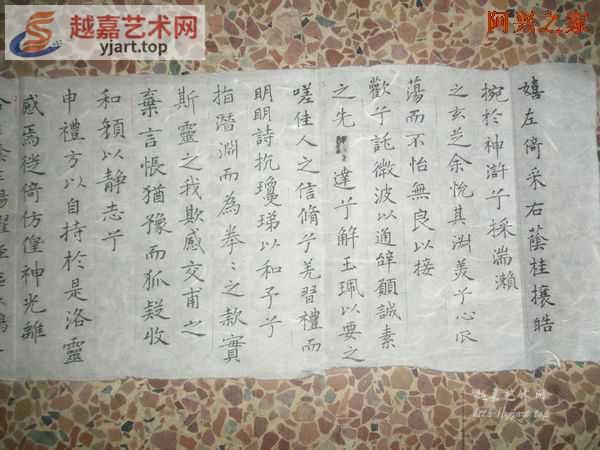 越嘉艺术网
yjart.top
阿新之家
嬉左倚采右蔭桂攘皓
捥於神滸兮採湍瀨
之玄芝余悅其淑美兮心
蕩而不怡無良以接
歡兮託微波以通辭願誠素
之先達兮解玉珮以要之
嗟佳人之信脩兮羌習禮而
明明詩抗瓊珶以和予兮
指潛淵而為拳〻之款實
斯靈之我欺感交甫之
棄言悵猶豫而狐疑收
和顏以静志兮
申禮方以自持於是洛靈
感焉徙倚仿徨神光離
越嘉艺术网
http://yjart.top